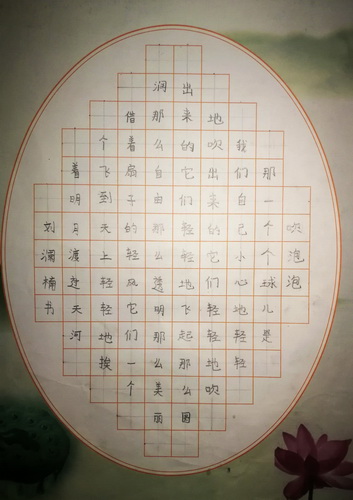 吹泡泡
那一个个球儿是
我们自己小心地轻轻
地吹出来的它们轻轻地吹
出来的它们轻轻地飞起那么圆
润那么自由那么透明那么美丽
借着扇子的轻风它们一个
个飞到天上轻轻地挨
着明月渡过天河
刘澜楠书